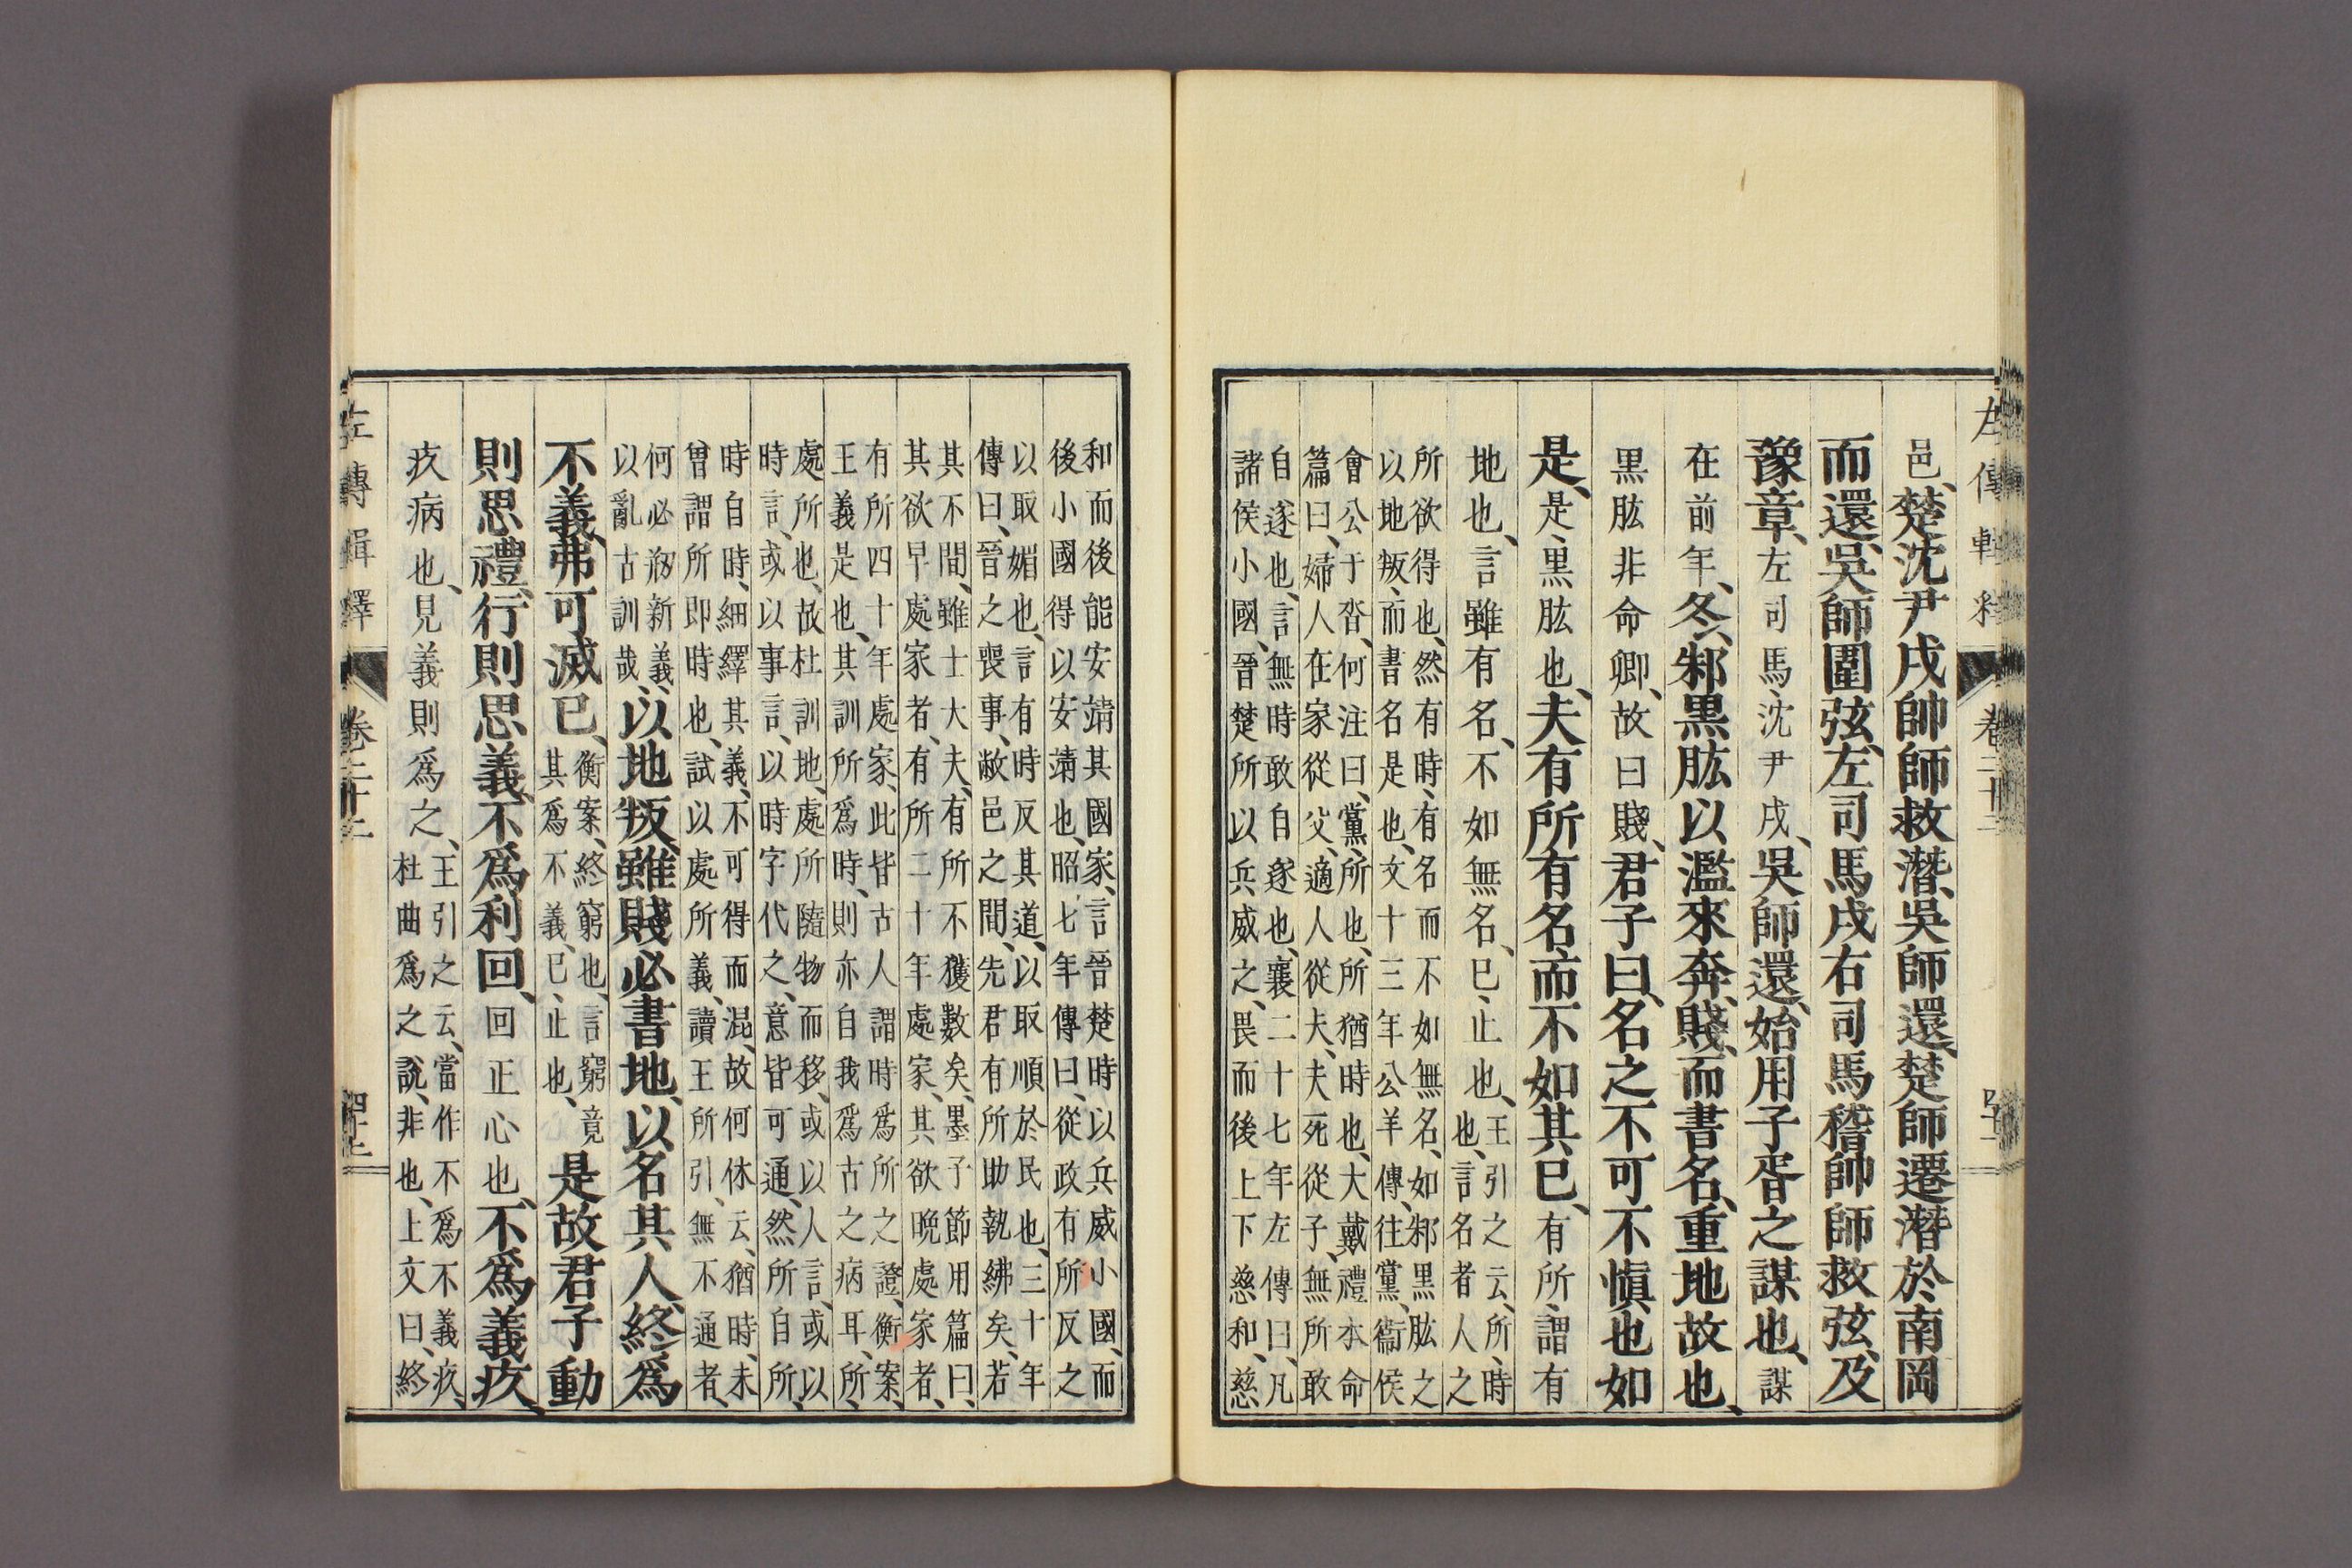 邑、楚沈尹戌帥師救潛、吳師還、楚師遷潛於南岡
而還、吳師圍弦、左司馬戌右司馬稽帥師救弦、及
豫章、左司馬、沈尹戌、吳師還、始用子胥之謀也、謀
在前年、冬、邾黑肱以濫來奔、賤、而書名、重地故也、
黑肱非命卿、故曰賤、君子曰、名之不可不愼也如
是、是、黑肱也、夫有所有名、而不如其已、有所、謂有
地也、言雖有名、不如無名、已、止也、王引之云、所、時
也、言名者人之
所欲得也、然有時、有名而不如無名、如邾黑肱之
以地叛、而書名是也、文十三年公羊傳、往黨、衞侯
會公于沓、何注曰、黨、所也、所猶時也、大戴禮本命
篇曰、婦人在家從父、適人從夫、夫死從子、無所敢
自遂也、言無時敢自遂也、襄二十七年左傳曰、凡
諸侯小國、晉楚所以兵威之、畏而後上下慈和、慈
左傳輯釋 卷二十二
和而後能安靖其國家、言晉楚時以兵威小國、而
後小國得以安靖也、昭七年傳曰、從政有所反之
以取媚也、言有時反其道、以取順於民也、三十年
傳曰、晉之喪事、敝邑之間、先君有所助執紼矣、若
其不間、雖士大夫、有所不獲數矣、墨子節用篇曰、
其欲早處家者、有所二十年處家、其欲晩處家者、
有所四十年處家、此皆古人謂時爲所之證、衡案、
王義是也、其訓所爲時、則亦自我爲古之病耳、所、
處所也、故杜訓地、處所隨物而移、或以人言、或以
時言、或以事言、以時字代之、意皆可通、然所自所、
時自時、細繹其義、不可得而混、故何休云、猶時、未
曾謂所即時也、試以處所義、讀王所引、無不通者、
何必剏新義、
以亂古訓哉、以地叛、雖賤必書地、以名其人、終爲
不義、弗可滅已、衡案、終窮也、言窮竟
其爲不義、已、止也、是故君子動
則思禮、行則思義、不爲利回、回正心也、不爲義疚、
疚病也、見義則爲之、王引之云、當作不爲不義疚、
杜曲爲之說、非也、上文曰、終
左傳輯釋 卷二十二